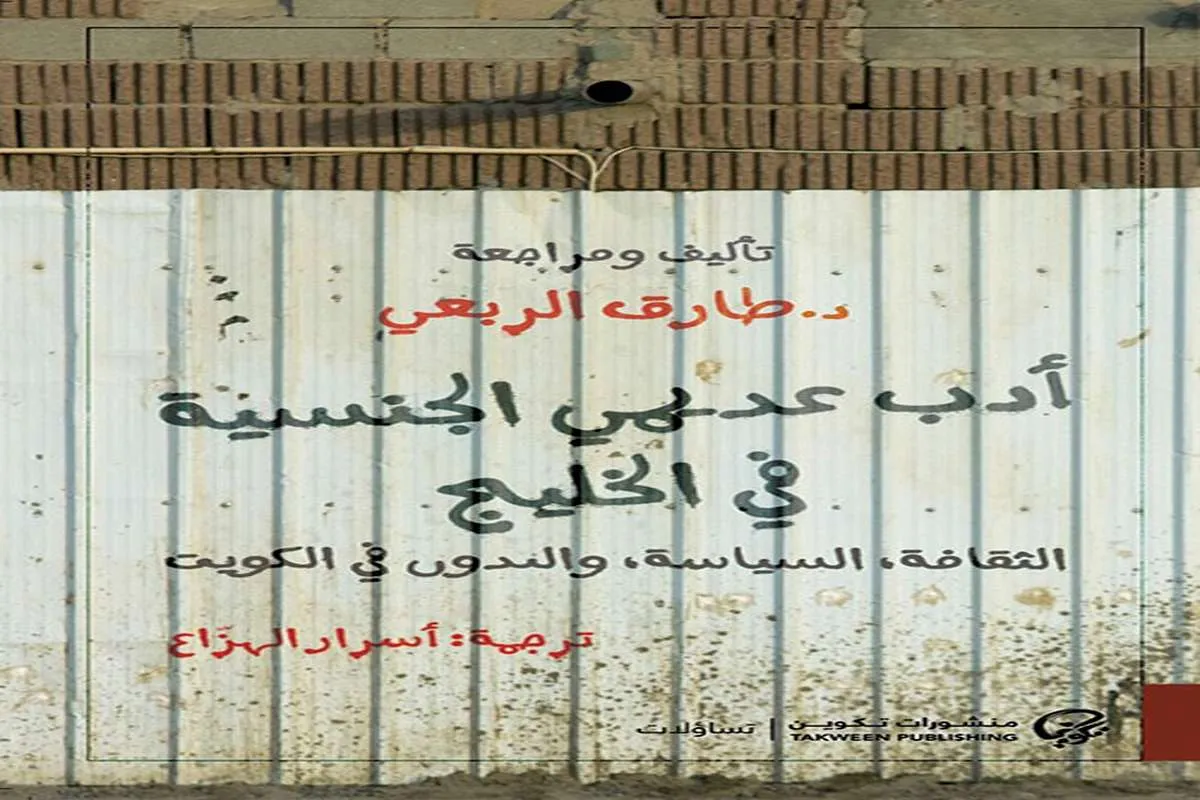 تأليف ومراجعة
د. طارق الربعي
أدب عديمي الجنسية
في الخليج
الثقافة، السياسة، والبدون في الكويت
ترجمة: أسرار الهزّاع
منشورات تكوين | تساؤلات
TAKWEEN PUBLISHING